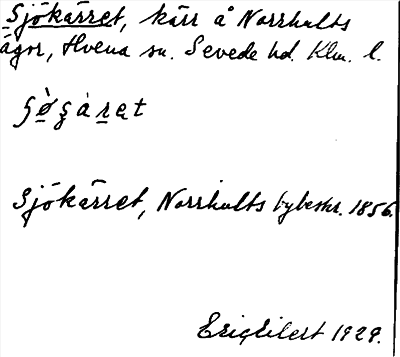 Sjökärret, kärr å Norrhults
ägor, Hvena sn. Sevede hd. Klm. l.
Sjökärret, Norrhults bybeskr. 1856.
Eric Eilert 1929.